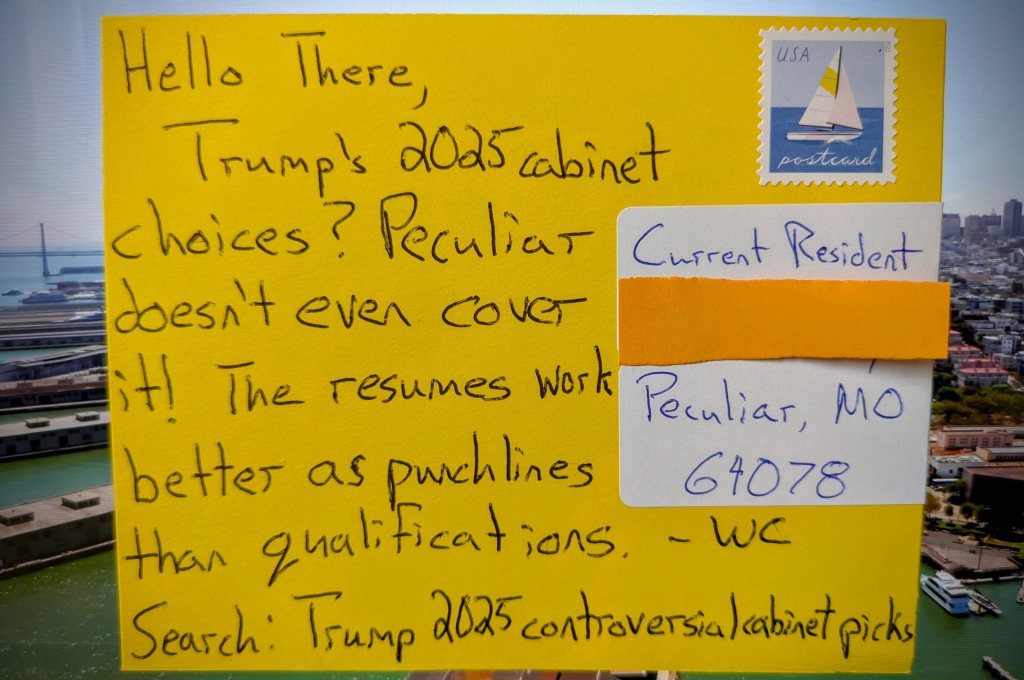 Hello There,
Trump's 2025 cabinet
choices? Peculiar
doesn't even cover
it! The resumes work
better as punchlines
than qualifications. - WC
Search: Trump 2025 controversial cabinet picks
USA
postcard
Current Resident
Peculiar, MO
64078